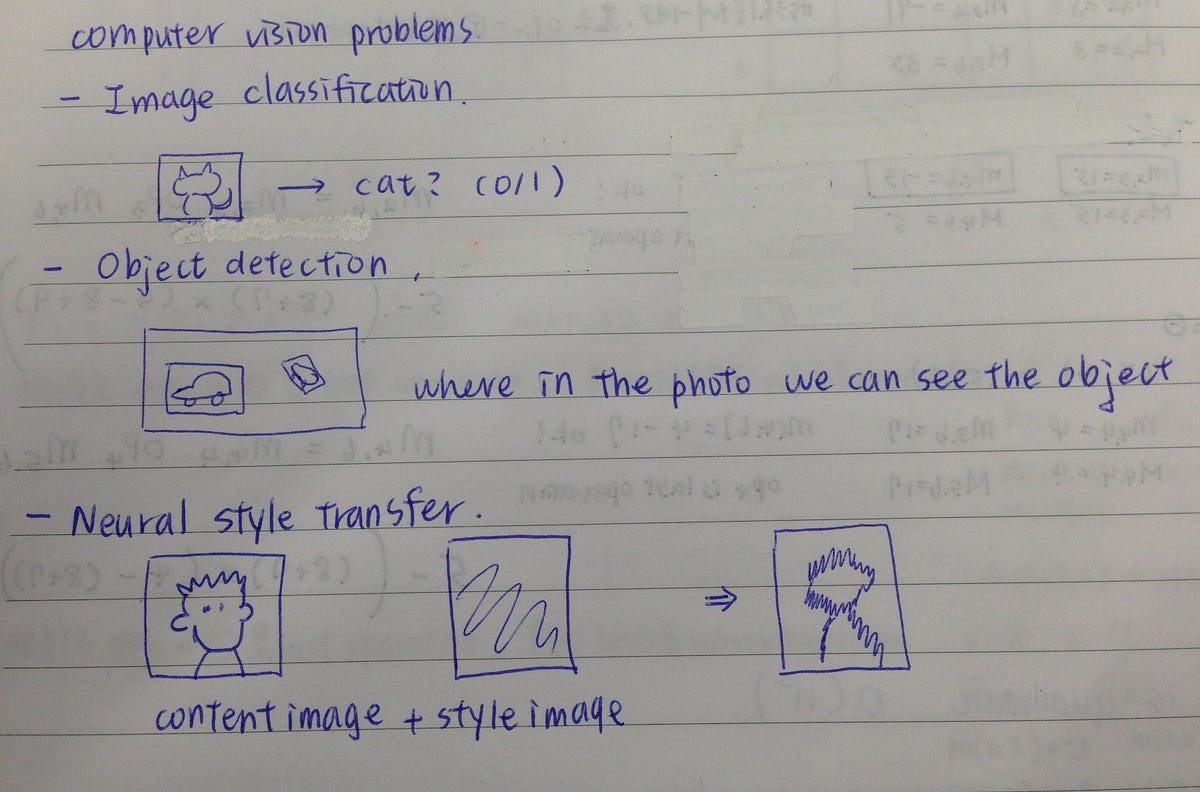 computer vision problems.
- Image classification.
→ cat? (0/1)
- Object detection,
where in the photo we can see the object
- Neural style transfer.
⇒
content image + style image